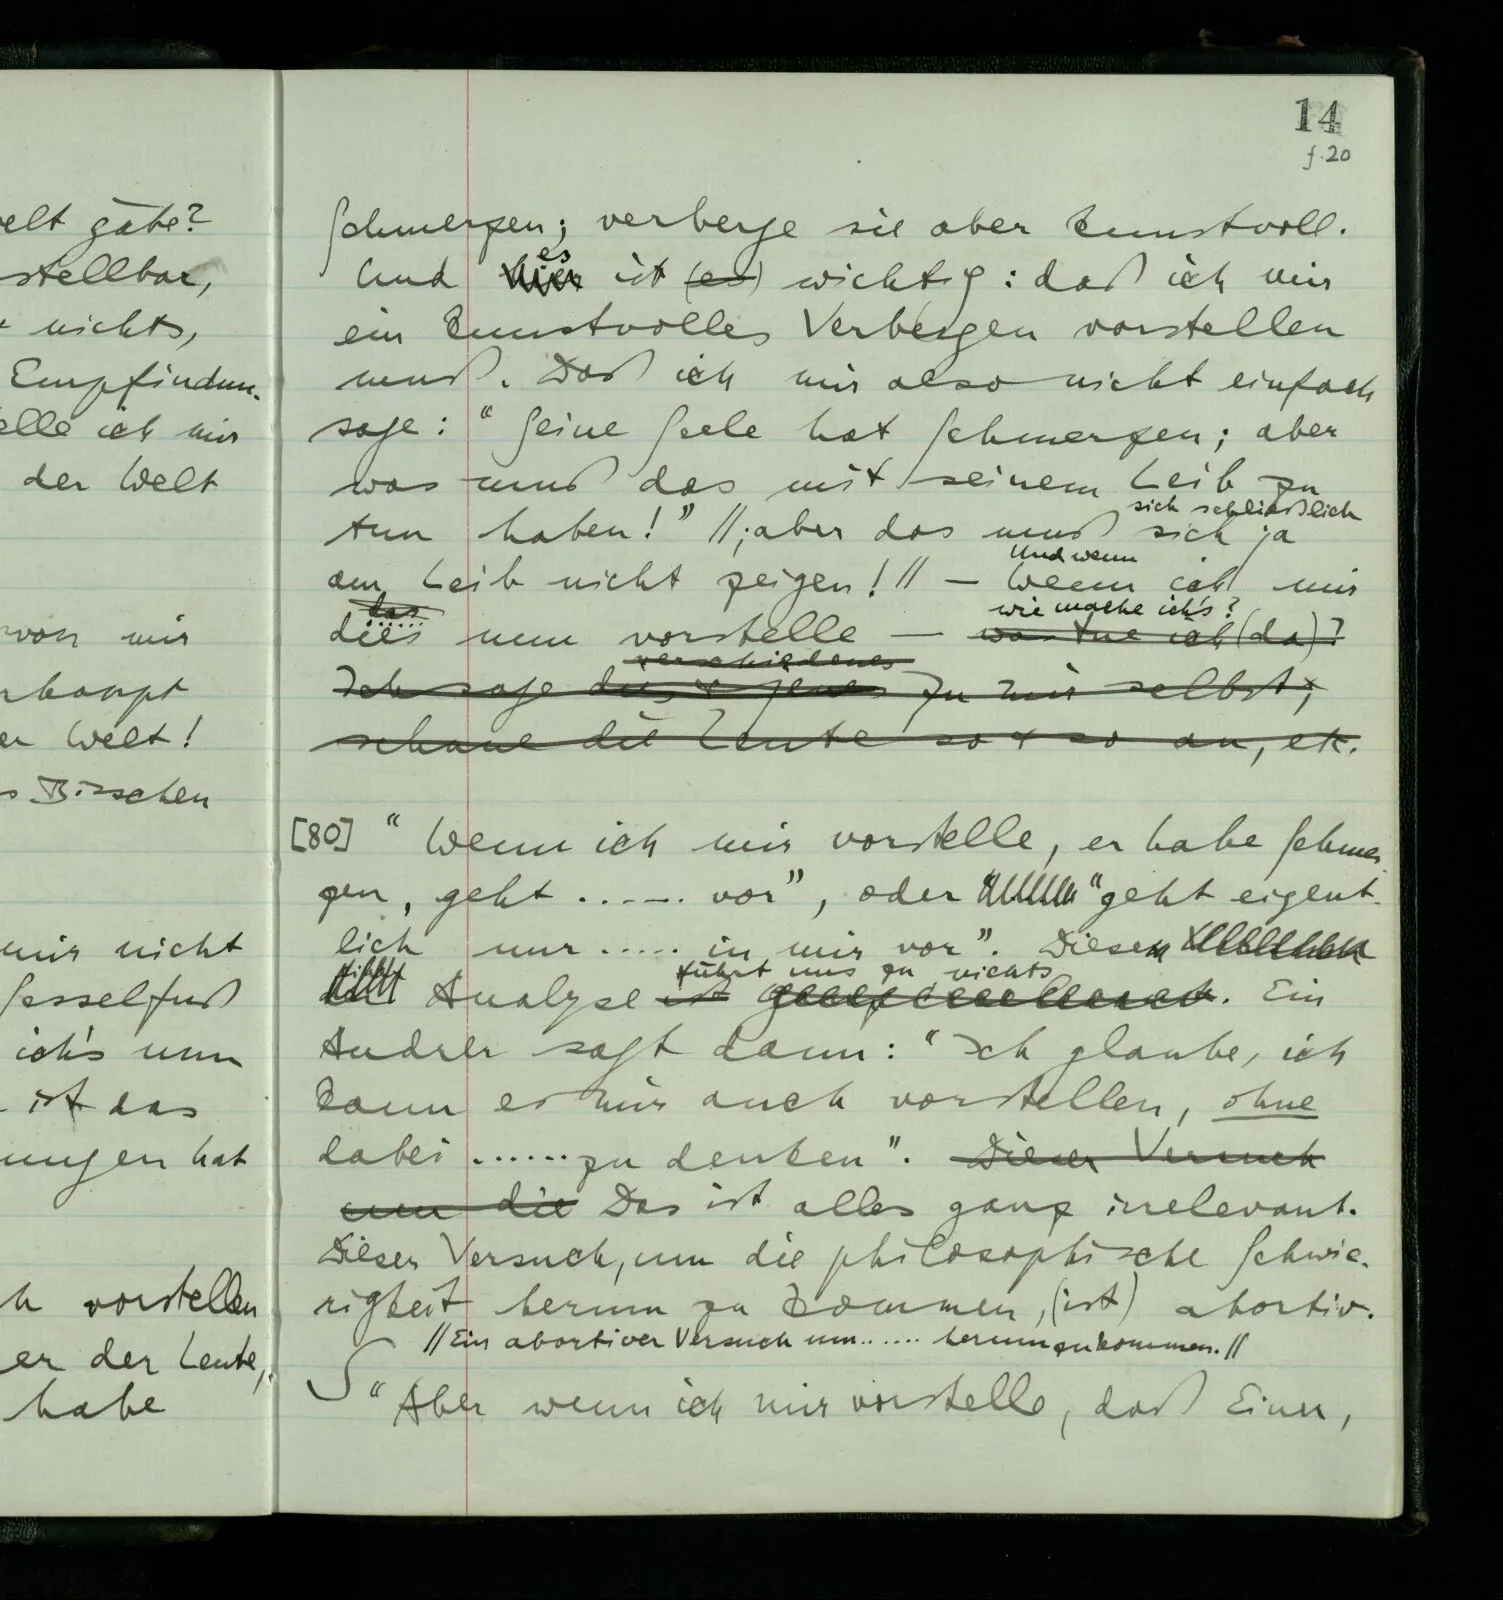 14
f. 20
elt gäbe?
stellbar,
nichts,
Empfindun-
elle ich mir
der Welt
von mir
rhaupt
er Welt!
s Bisschen
mir nicht
Sesselfuß
ich's nun
ist das
ungen hat
h vorstellen
er der Leute,
habe
Schmerzen; verberge sie aber kunstvoll.
es
Und hier ist (es) wichtig: daß ich mir
ein kunstvolles Verbergen vorstellen
muß. Daß ich mir also nicht einfach
sage: “Seine Seele hat Schmerzen; aber
was muß das mit seinem Leib zu
sich schließlich
tun haben!” //; aber das muß sich ja
Und wenn
am Leib nicht zeigen! // – Wenn ich mir
das wie mache ich's?
dies nun vorstelle – was tue ich (da)?
verschiedenes
Ich sage dies & jenes zu mir selbst;
schaue die Leute so & so an, etc.
[80] “Wenn ich mir vorstelle, er habe Schmer-
zen, geht ...... vor”, oder “geht eigent-
lich nur ..... in mir vor”. Diese
führt uns zu nichts
Analyse ist. Ein
Andrer sagt dann: “Ich glaube, ich
kann es mir auch vorstellen, ohne
dabei ...... zu denken”. Dieser Versuch
um die Das ist alles ganz irrelevant.
Dieser Versuch, um die philosophische Schwie-
rigkeit herum zu kommen, (ist) abortiv.
// Ein abortiver Versuch um ...... herumzukommen. //
“Aber wenn ich mir vorstelle, daß Einer,